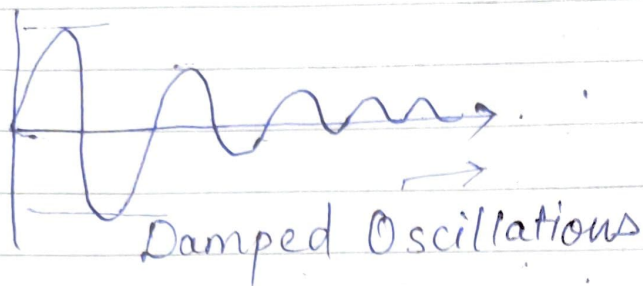 Damped Oscillations